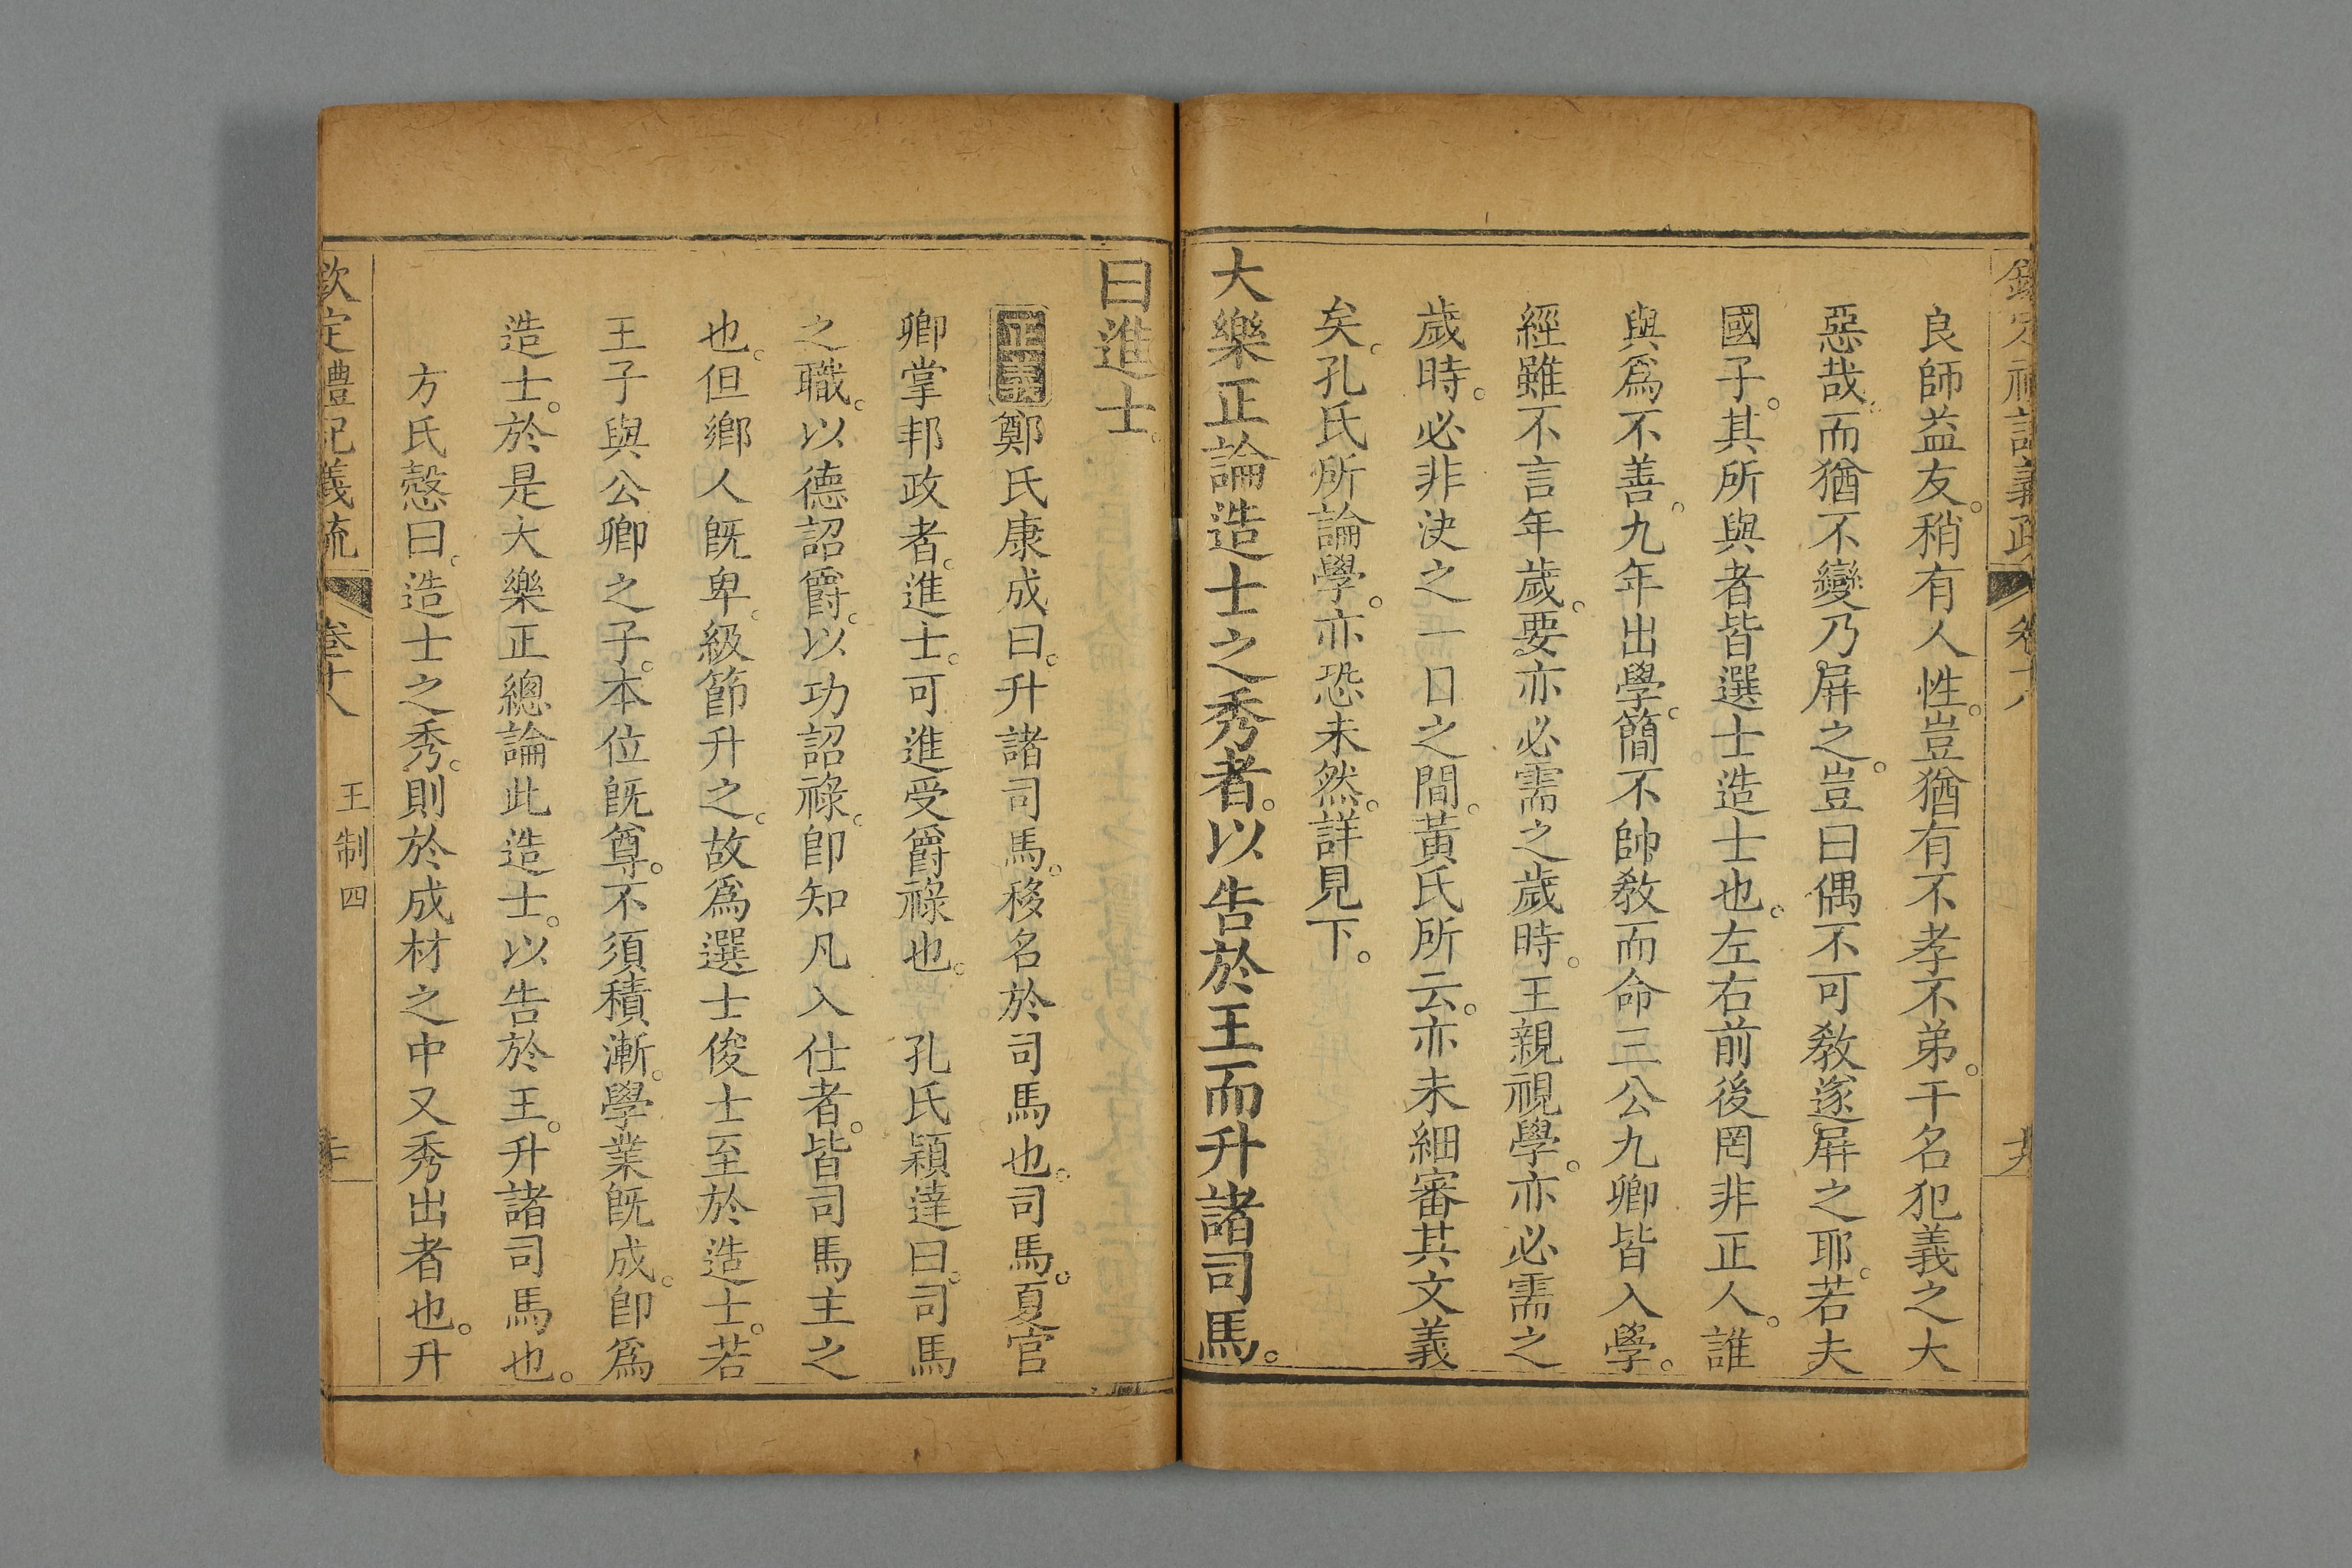 良師益友。稍有人性。豈猶有不孝不弟。干名犯義之大
惡哉。而猶不變。乃屏之。豈曰偶不可敎。遂屏之耶。若夫
國子。其所與者皆選士造士也。左右前後罔非正人。誰
與爲不善。九年出學。簡不帥敎而命三公九卿皆入學。
經雖不言年歲。要亦必需之歲時。王親視學。亦必需之
歲時。必非決之一日之間。黃氏所云。亦未細審其文義
矣。孔氏所論學。亦恐未然。詳見下。
大樂正論造士之秀者。以告於王而升諸司馬。
曰進士。
正義鄭氏康成曰。升諸司馬。移名於司馬也。司馬。夏官
卿掌邦政者。進士。可進受爵祿也。 孔氏穎達曰。司馬
之職。以德詔爵。以功詔祿。卽知凡入仕者。皆司馬主之
也。但鄉人旣卑。級節升之。故爲選士俊士至於造士。若
王子與公卿之子。本位旣尊。不須積漸。學業旣成。卽爲
造士。於是大樂正總論此造士。以告於王。升諸司馬也。
方氏愨曰。造士之秀。則於成材之中又秀出者也。升
欽定禮記義疏 卷十八 王制四